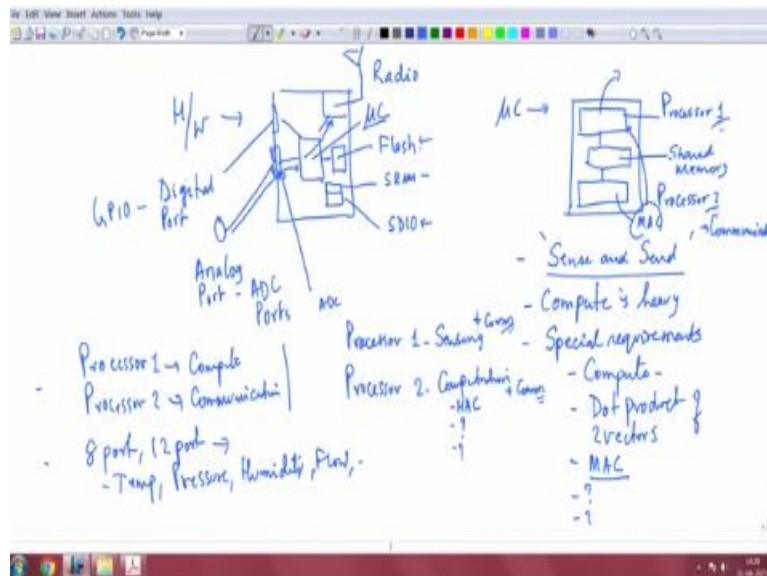 File Edit View Insert Actions Tools Help
Page Width
H/W →
Radio
μC
Flash ←
SRAM -
SDIO ←
GPIO - Digital Port
Analog Port - ADC Ports
ADC
μC →
Processor 1
Shared Memory
Processor 2
MAC
- Sense and Send
- Compute is heavy
- Special requirements
- Compute -
- Dot product of 2 vectors
- MAC
- ?
- ?
Processor 1 → Compute
Processor 2 → Communication
Processor 1 - Sensing + Comm
Processor 2 - Computation + Comm
- MAC
- ?
- ?
- 8 port, 12 port →
- Temp, Pressure, Humidity, Flow, -